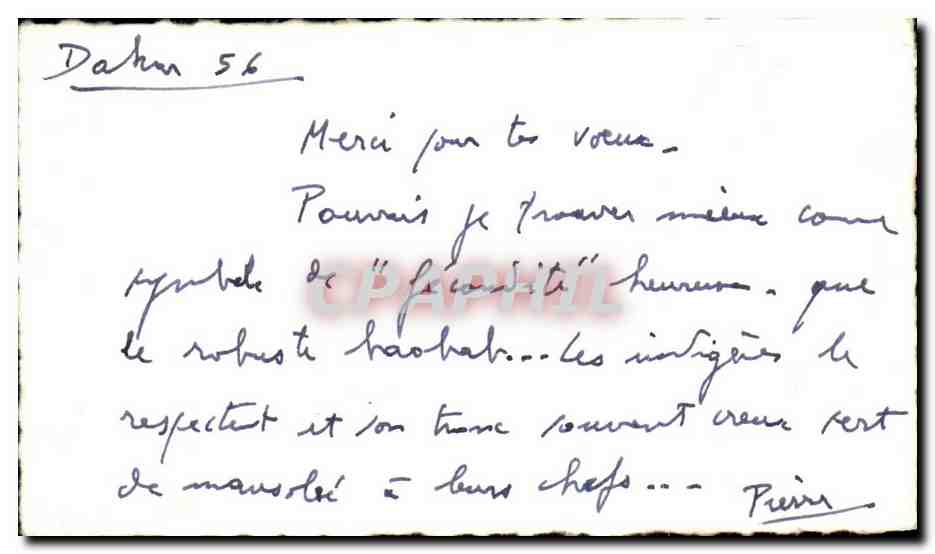 Dakar 56
Merci pour tes voeux.
Pouvais je trouver mieux comme
symbole de "fécondité" heureuse. que
le robuste baobab... Les indigènes le
respectent et son tronc souvent creux sert
de mausolée à leurs chefs...
Pierre
CPAPHIL